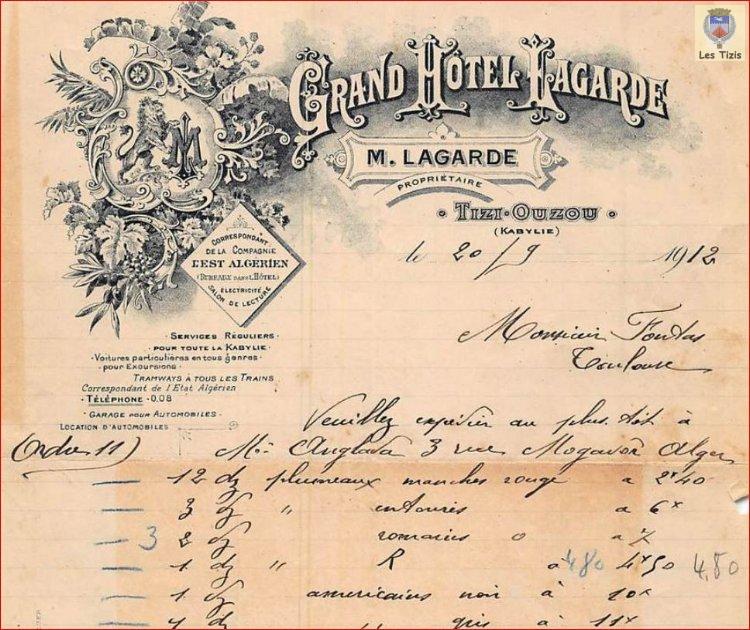 Les Tizis
GRAND HÔTEL LAGARDE
M. LAGARDE
PROPRIÉTAIRE
TIZI-OUZOU
(KABYLIE)
M
CORRESPONDANT
DE LA COMPAGNIE
L'EST ALGERIEN
(BUREAUX DANS L'HÔTEL)
ÉLECTRICITÉ
SALON DE LECTURE
le 20/9 1912
SERVICES RÉGULIERS
POUR TOUTE LA KABYLIE
Voitures particulières en tous genres
pour EXCURSIONS
TRAMWAYS À TOUS LES TRAINS
Correspondant de l'Etat Algérien
TÉLÉPHONE 0.08
GARAGE POUR AUTOMOBILES
LOCATION D'AUTOMOBILES
Monsieur
Toulouse
Veuillez expédier au plus tôt à
(Ordre 11) Mr Anglada 3 rue Mogador Alger
12 dz plumeaux manches rouge a 2 40
3 dz " entourés a 6
3 2 dz romains o a 7
1 dz " R à 480 4 50 4.80
1 dz americains noir à 10
" gris à 11